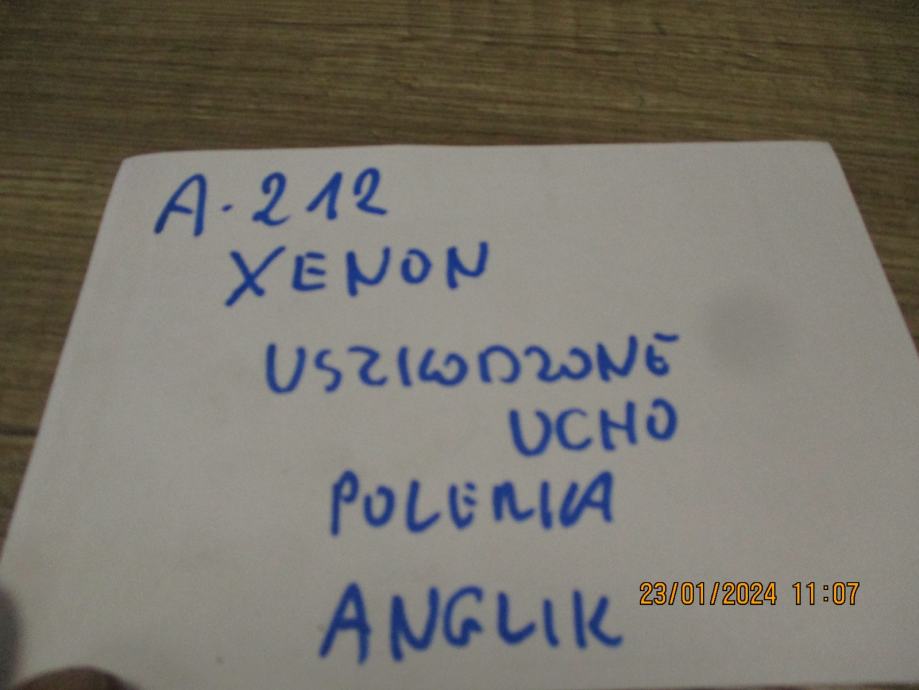 A-212
XENON
USZKODZONE
UCHO
POLERKA
ANGLIK
23/01/2024 11:07